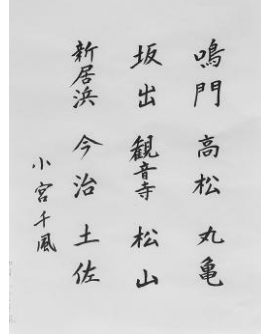 鳴門 高松 丸亀
坂出 観音寺 松山
新居浜 今治 土佐
小宮千風